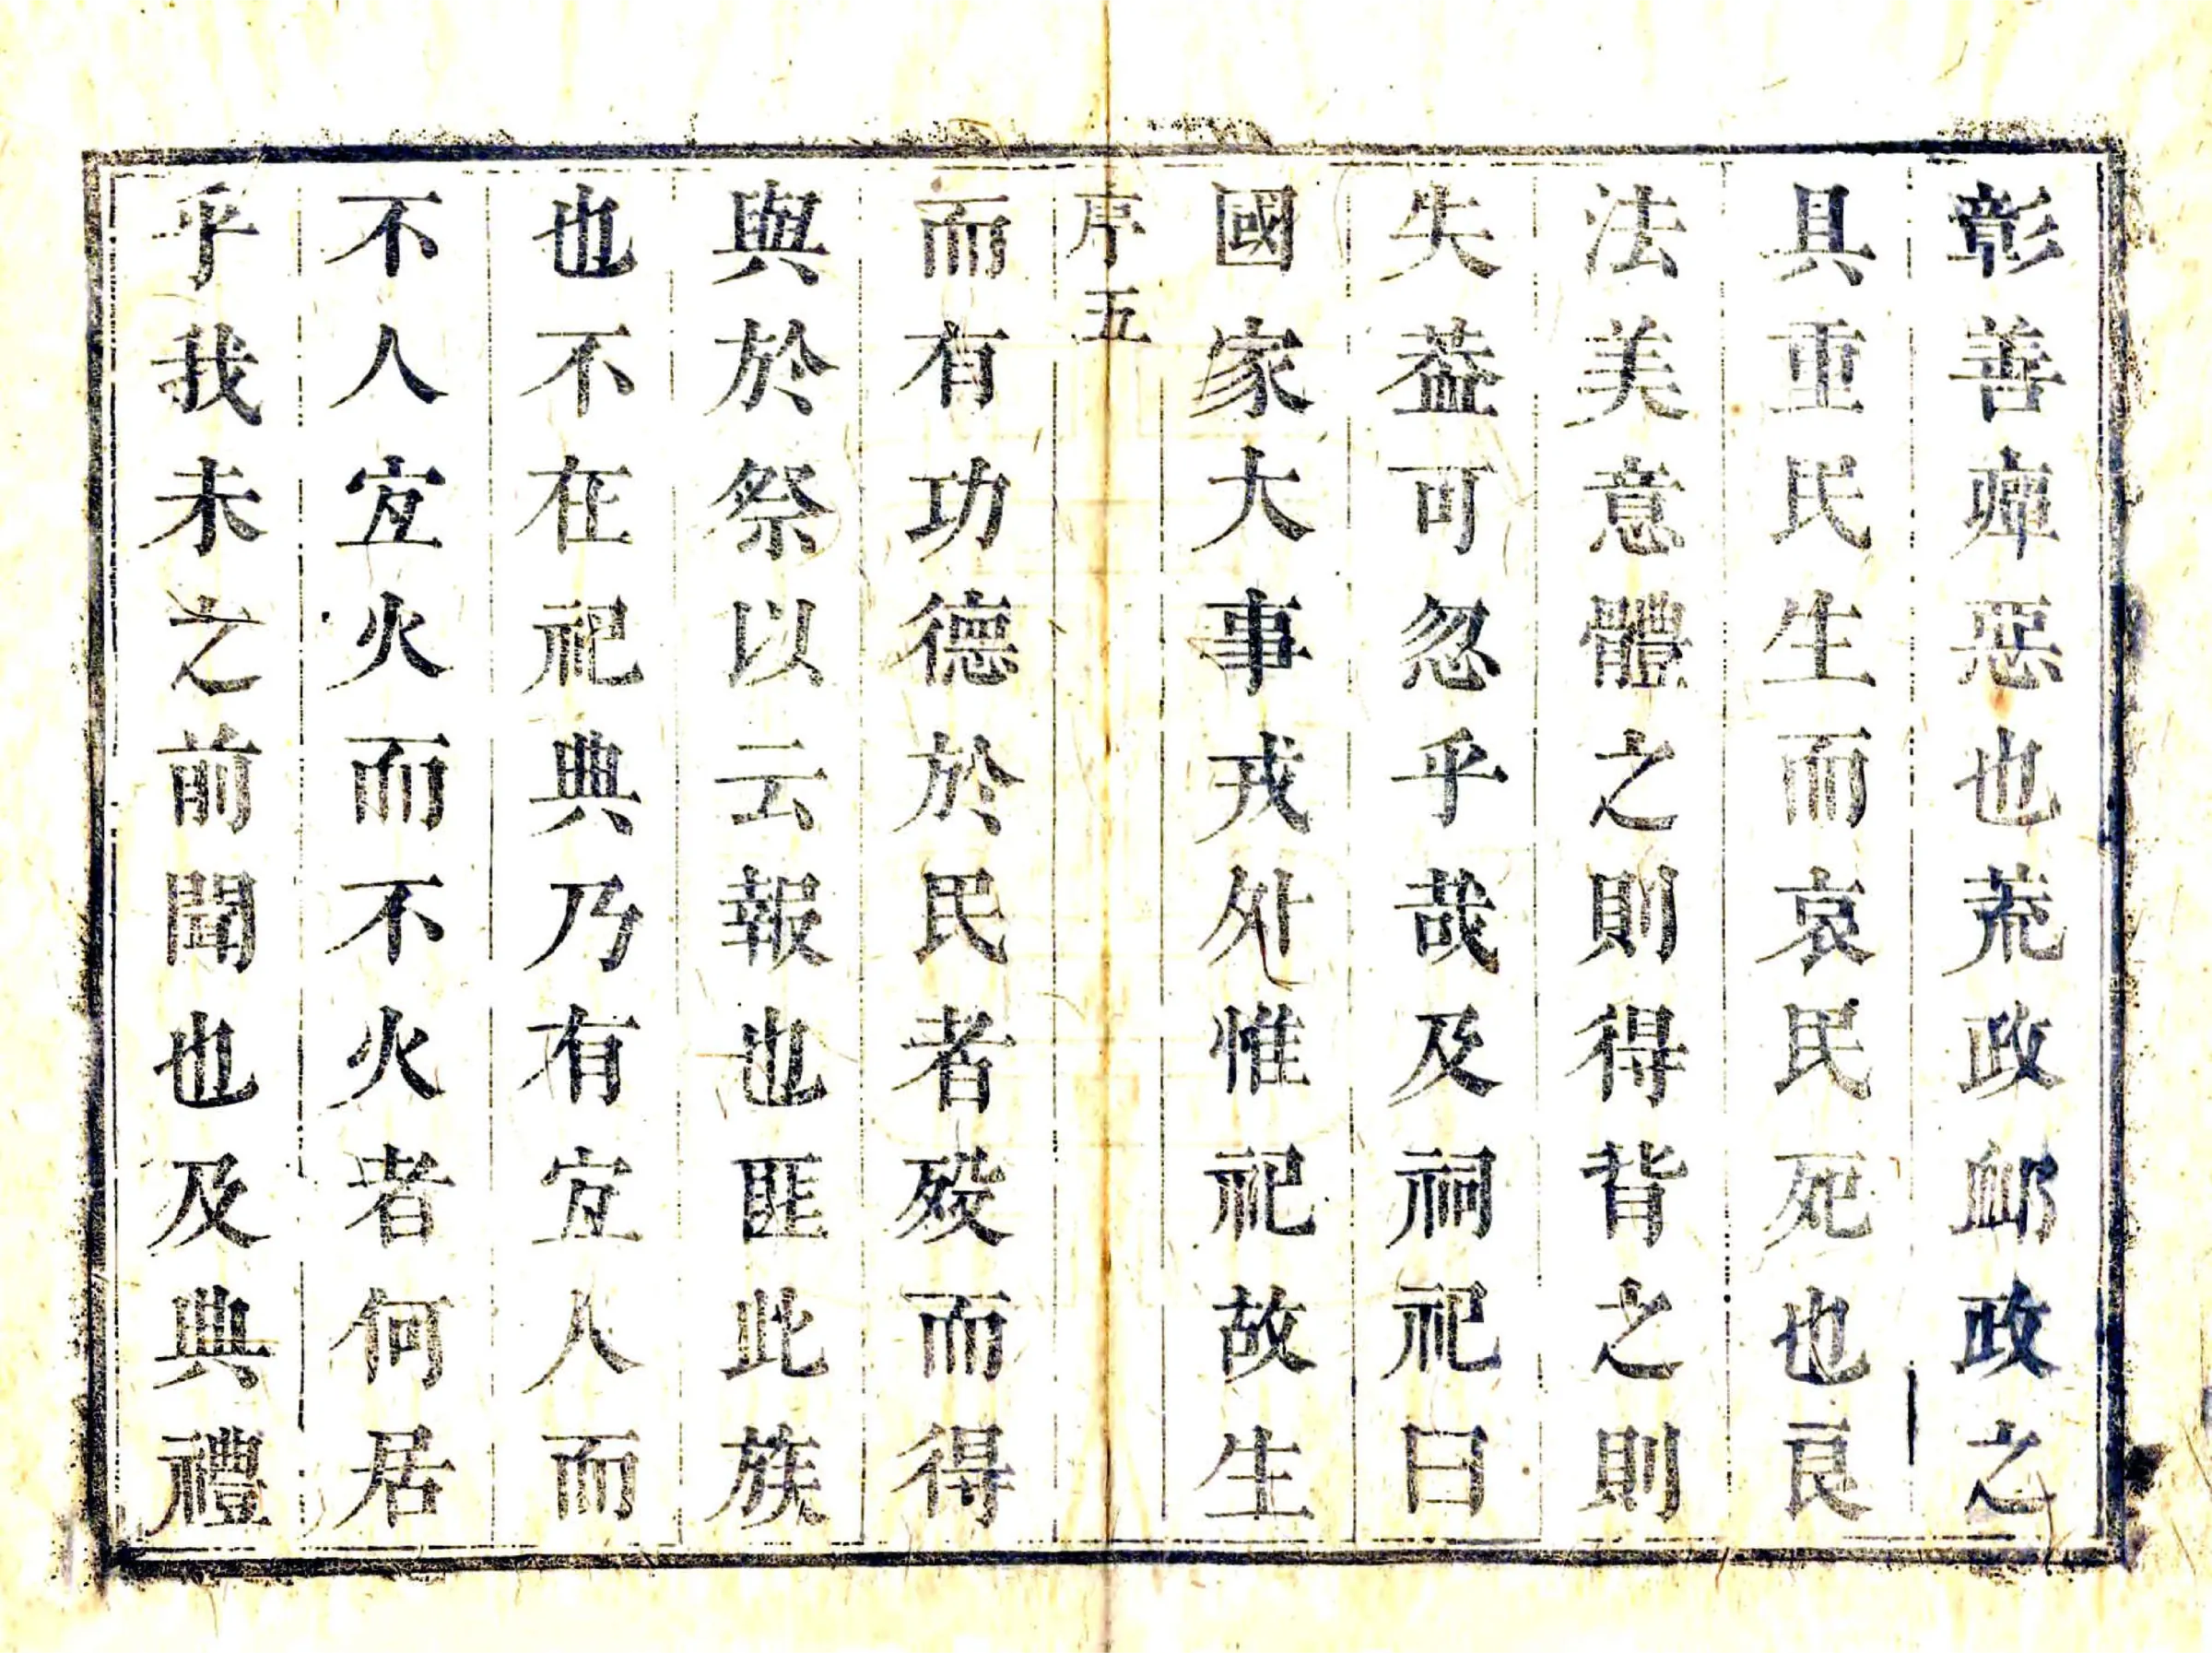 彰善癉惡也荒政邮政之
具重民生而哀民死也良
法美意體之則得背之則
失葢可忽乎哉及祠祀曰
國家大事戎外惟祀故生
序五
而有功德於民者歿而得
與於祭以云報也匪此族
也不在祀典乃有宜人而
不人宜火而不火者何居
乎我未之前聞也及典禮